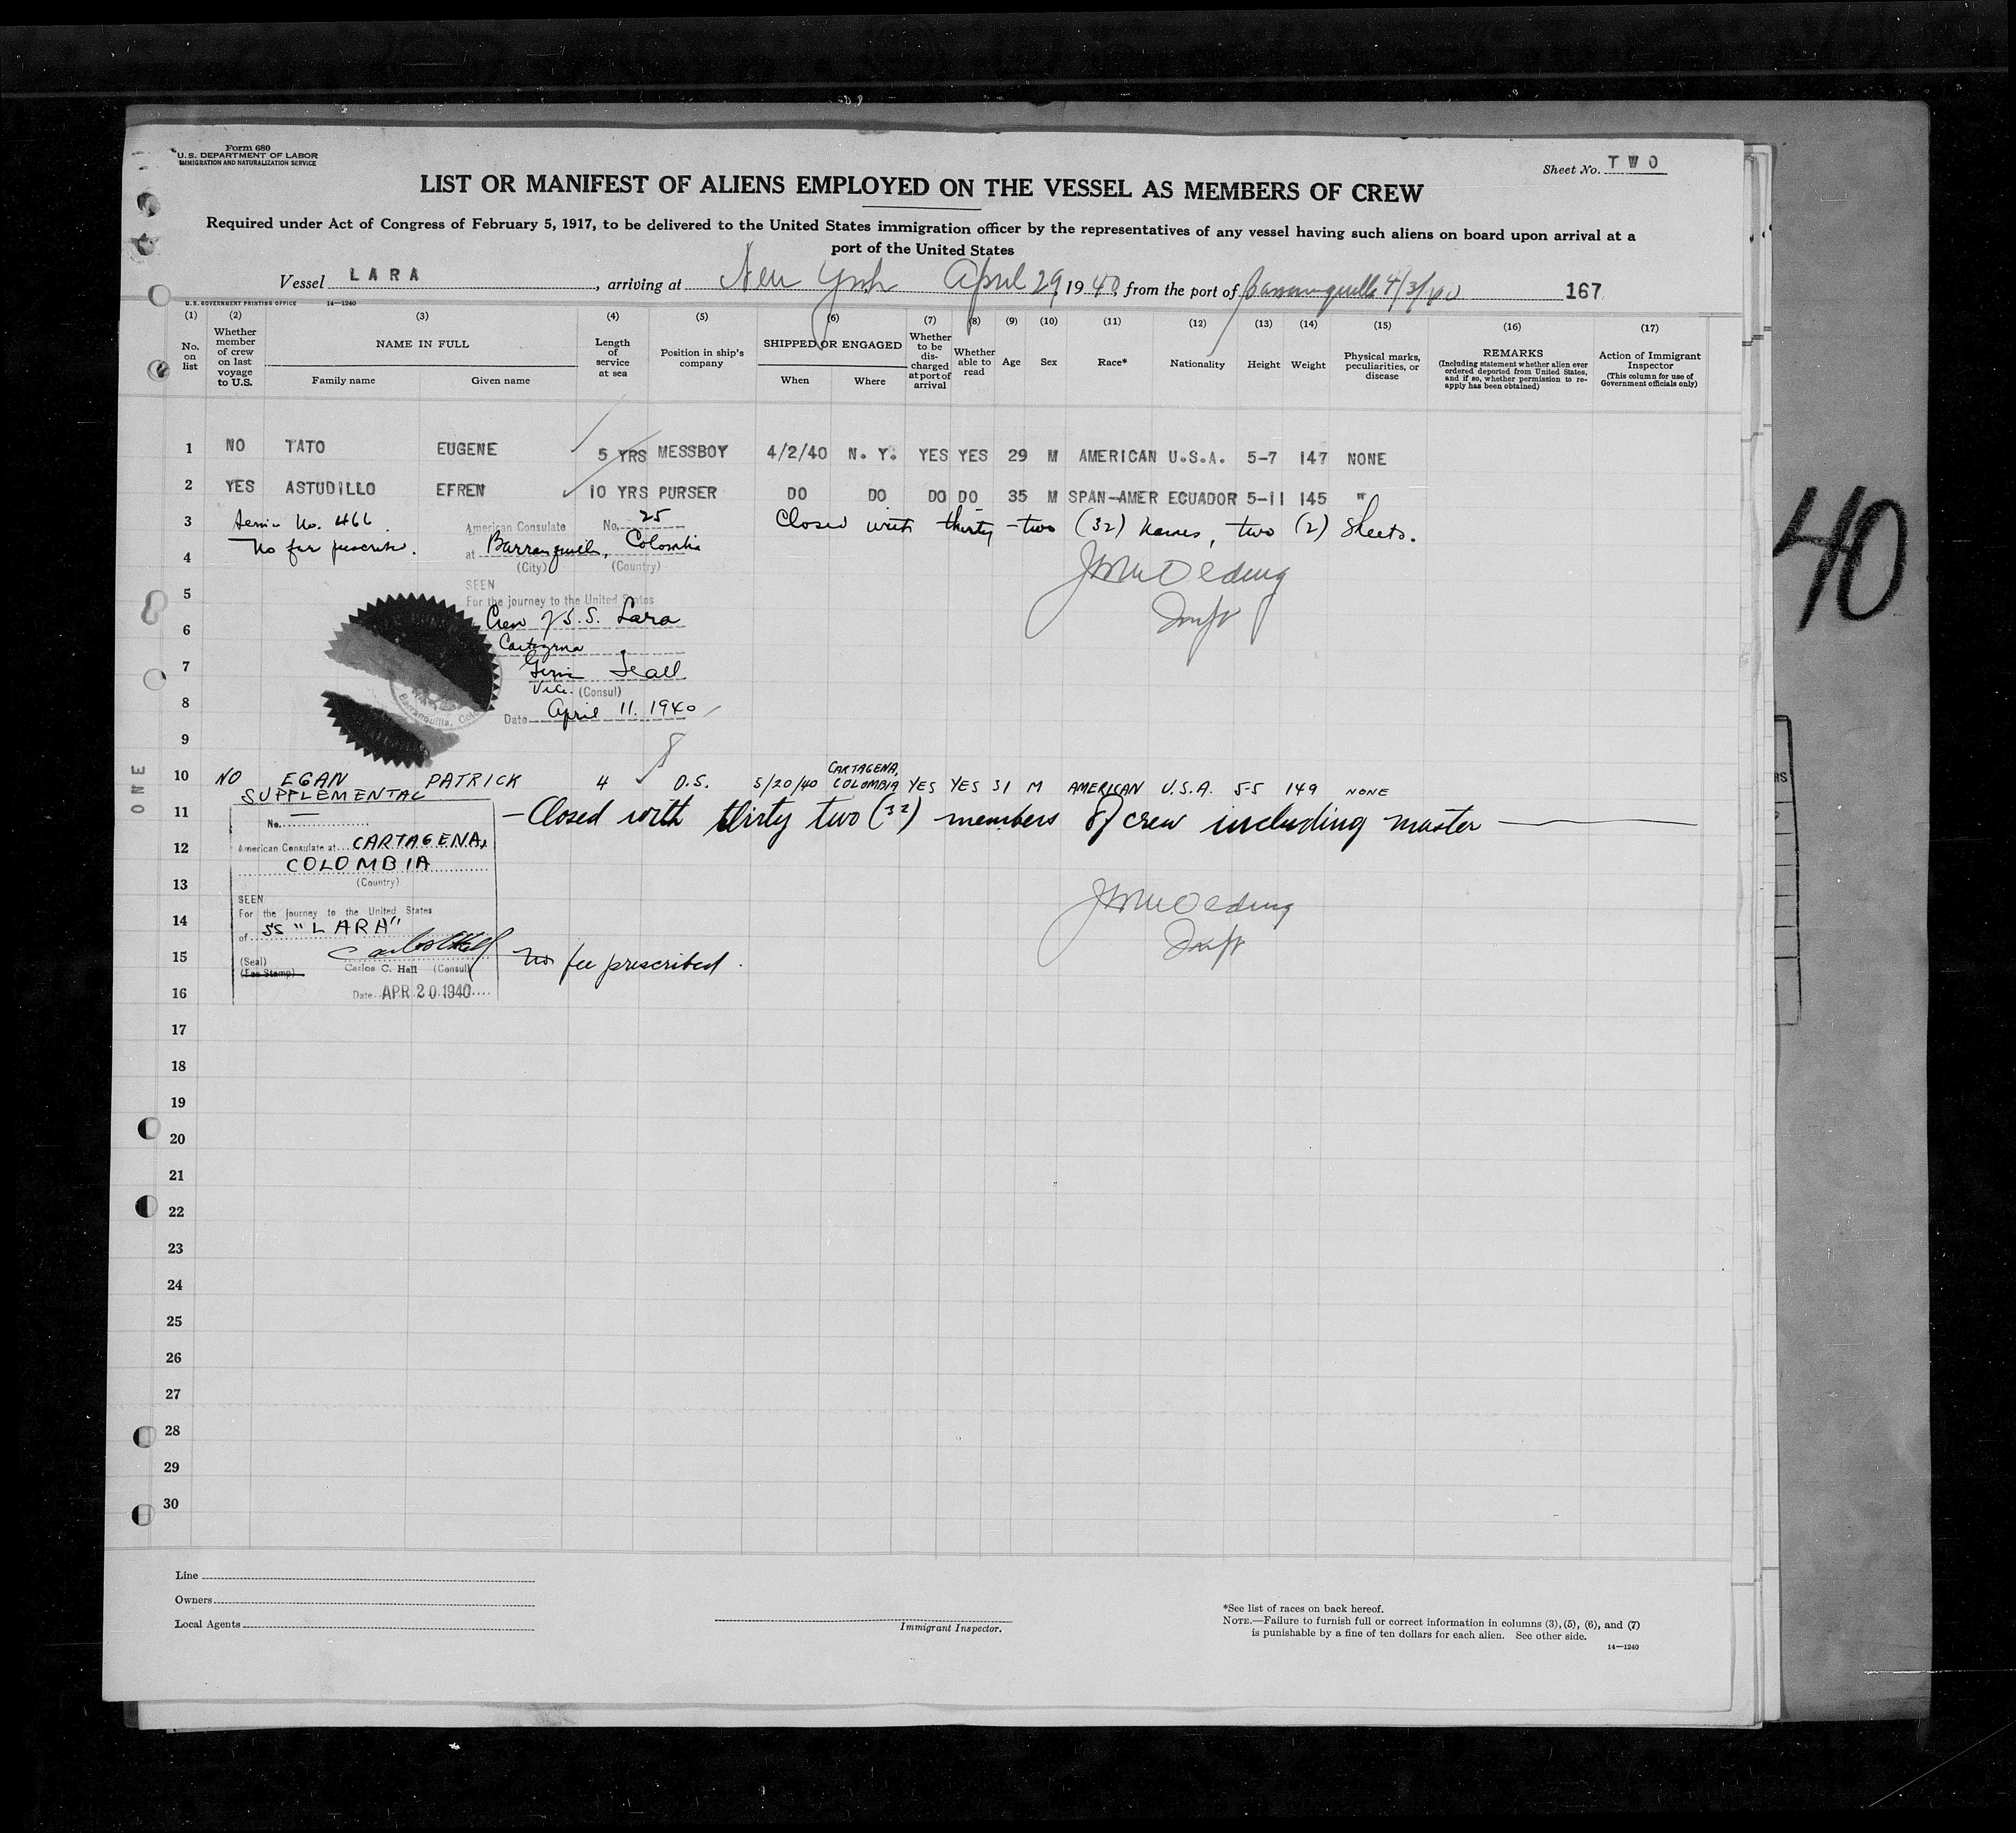 Form 680
U. S. DEPARTMENT OF LABOR
IMMIGRATION AND NATURALIZATION SERVICE
Sheet No. TWO
LIST OR MANIFEST OF ALIENS EMPLOYED ON THE VESSEL AS MEMBERS OF CREW
Required under Act of Congress of February 5, 1917, to be delivered to the United States immigration officer by the representatives of any vessel having such aliens on board upon arrival at a
port of the United States
Vessel LARA, arriving at New York April 29, 1940, from the port of Barranquilla 4/3/40 167
U. S. GOVERNMENT PRINTING OFFICE 14—1240
(1) (2) (3) (4) (5) (6) (7) (8) (9) (10) (11) (12) (13) (14) (15) (16) (17)
No. on list
Whether member of crew on last voyage to U.S.
NAME IN FULL
Family name Given name
Length of service at sea
Position in ship's company
SHIPPED OR ENGAGED
When Where
Whether to be discharged at port of arrival
Whether able to read
Age
Sex
Race*
Nationality
Height
Weight
Physical marks, peculiarities, or disease
REMARKS
(Including statement whether alien ever ordered deported from United States, and if so, whether permission to reapply has been obtained)
Action of Immigrant Inspector
(This column for use of Government officials only)
1 NO TATO EUGENE 5 YRS MESSBOY 4/2/40 N. Y. YES YES 29 M AMERICAN U.S.A. 5-7 147 NONE
2 YES ASTUDILLO EFREN 10 YRS PURSER DO DO DO DO 35 M SPAN-AMER ECUADOR 5-11 145 "
3 No. 466 American Consulate No. 25 Closed with thirty-two (32) names, two (2) sheets.
4 No fee prescribed. at Barranquilla, Colombia
(City) (Country)
5 SEEN
For the journey to the United States
6 Crew of S.S. Lara
Cartagena
7
Vice (Consul)
8 Date April 11. 1940
Barranquilla, Col
9
10 NO EGAN PATRICK 4 O.S. 5/20/40 CARTAGENA, COLOMBIA YES YES 31 M AMERICAN U.S.A. 5-5 149 NONE
ONE
SUPPLEMENTAL
11 —Closed with thirty two (32) members of crew including master—
No.
12 American Consulate at CARTAGENA,
COLOMBIA
13 (Country)
SEEN
14 For the journey to the United States
of SS "LARA"
15 (Seal) No fee prescribed.
(Fee Stamp) Carlos C. Hall (Consul)
16 Date APR 20 1940
17
18
19
20
21
22
23
24
25
26
27
28
29
30
Line
Owners
Local Agents
Immigrant Inspector.
*See list of races on back hereof.
NOTE.—Failure to furnish full or correct information in columns (3), (5), (6), and (7)
is punishable by a fine of ten dollars for each alien. See other side.
14—1240
40